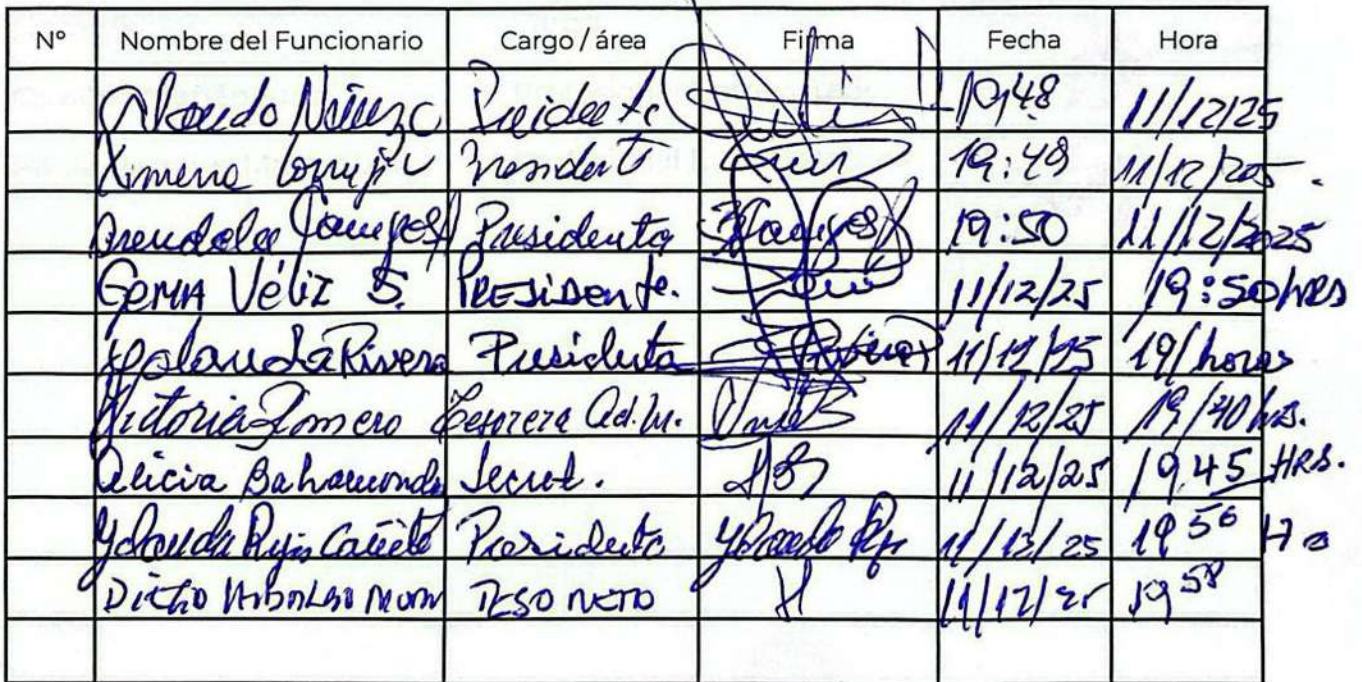 N° Nombre del Funcionario Cargo / área Firma Fecha Hora
Núñez 19,48 11/12/25
Ximena President 19:49 11/12/2025.
Campos Presidenta Campos 19:50 11/12/2025
GEMA Véliz S. PRESIDENTE. 11/12/25 19:50 HRS
Yolanda Rivera Presidenta 11/12/25 19/ horas
Victoria Romero Tesorera Ad.M. 11/12/25 19/40 hrs.
Alicia Bahamonde Secret. AB 11/12/25 19,45 HRS.
Yolanda Cañete Presidenta Yolanda 11/12/25 19 50
11/12/25 19 58